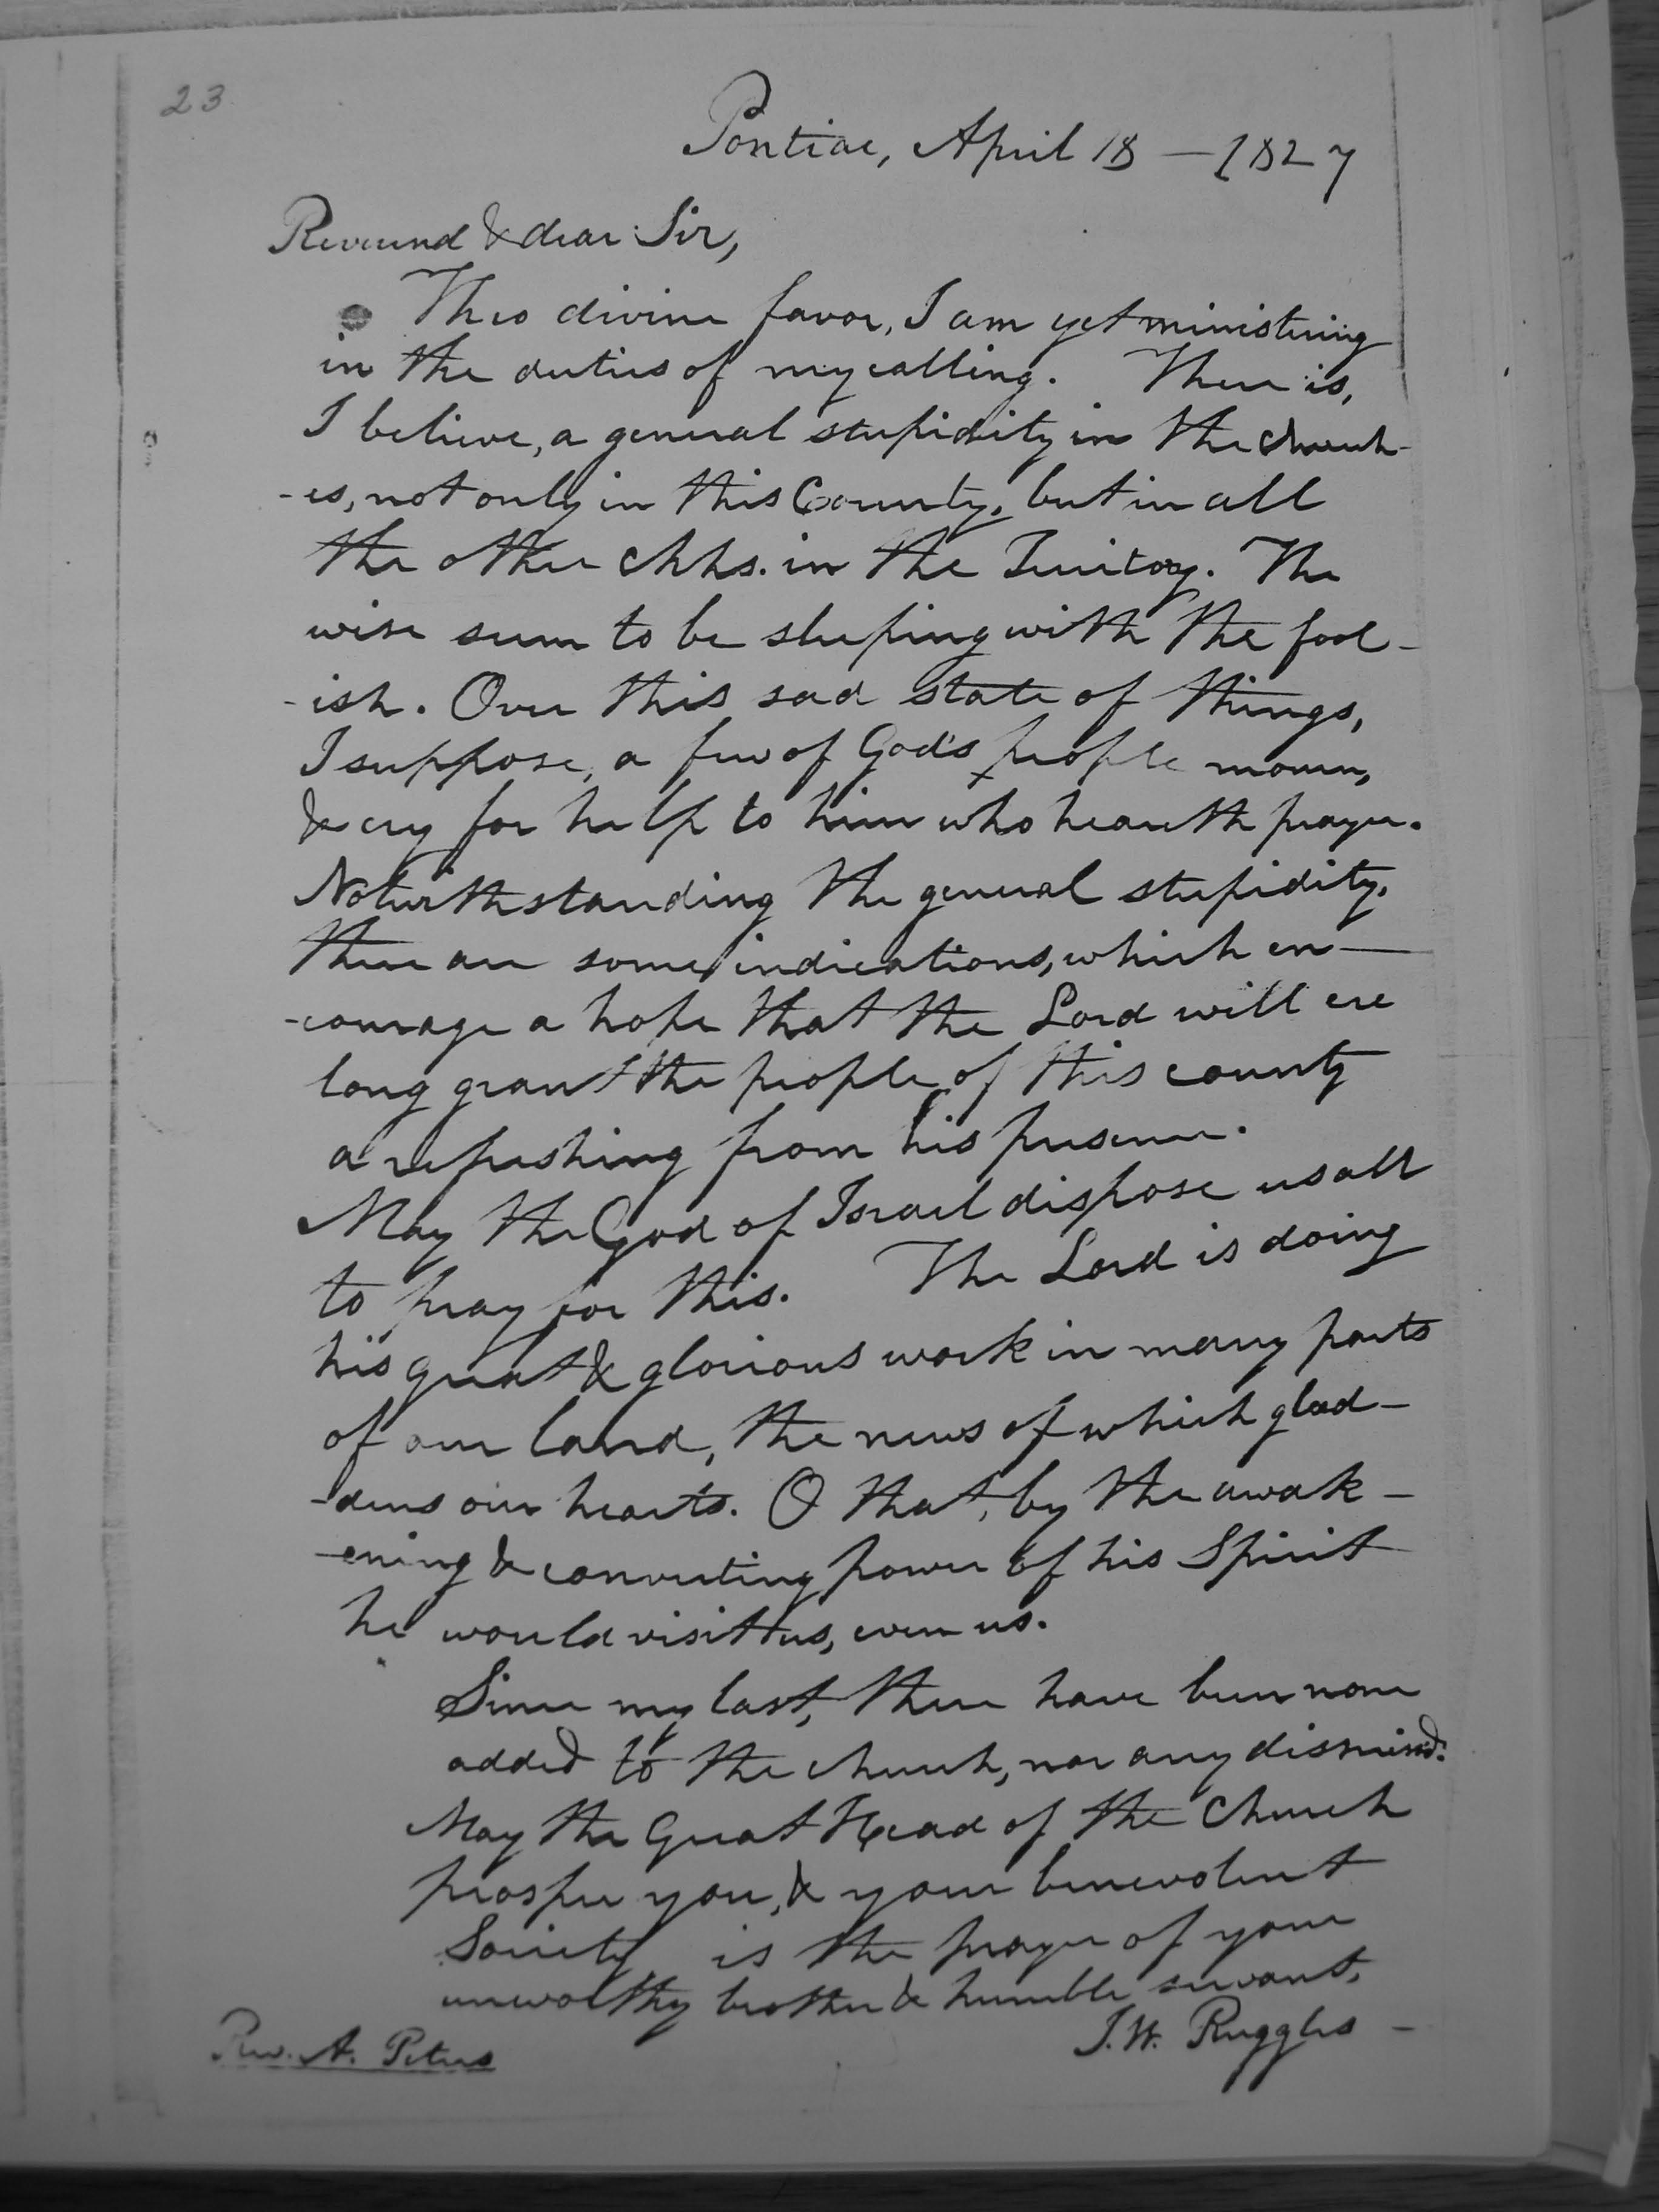 23
Pontiac, April 18 — 1827
Reverend & dear Sir,
Thro divine favor, I am yet ministering
in the duties of my calling. There is,
I believe, a general stupidity in the church-
-es, not only in this County, but in all
the other chhs. in the Territory. The
wise seem to be sleeping with the fool-
-ish. Over this sad state of things,
I suppose, a few of God's people mourn,
& cry for help to him who heareth prayer.
Notwithstanding the general stupidity,
there are some indications, which en-
-courage a hope that the Lord will ere
long grant the people of this county
a refreshing from his presence.
May the God of Israel dispose us all
to pray for this. The Lord is doing
his great & glorious work in many parts
of our land, the news of which glad-
-dens our hearts. O that, by the awak-
-ening & converting power of his Spirit
he would visit us, even us.
Since my last, there have been none
added to the church, nor any dismissd.
May the Great Head of the Church
prosper you, & your benevolent
Society, is the prayer of your
unworthy brother & humble servant,
I. W. Ruggles —
Rev. A. Peters